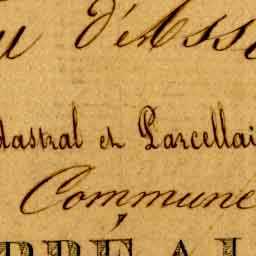 d'Ass
dastral et Parcellai
Commune
PRÉAU